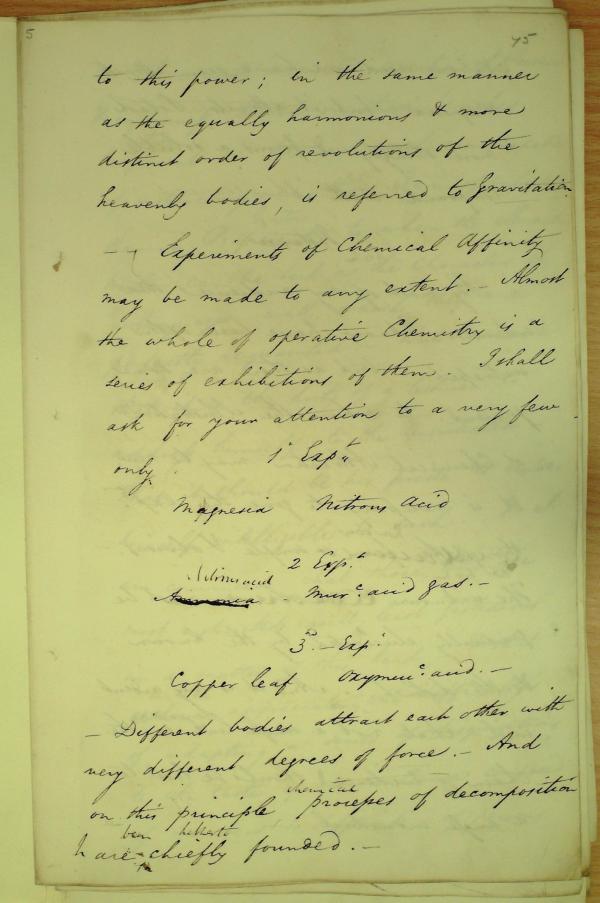 5 45
to this power; in the same manner
as the equally harmonious & more
distinct order of revolutions of the
heavenly bodies, is referred to Gravitation.
— Experiments of Chemical Affinity
may be made to any extent. – Almost
the whole of operative Chemistry is a
series of exhibitions of them. I shall
ask for your attention to a very few
only.
1st Expt
Magnesia Nitrous Acid
2 Expt
Nitrous acid
Ammonia – Murc. acid gas. –
3rd – Expt
Copper leaf Oxymurc. acid. –
– Different bodies attract each other with
very different degrees of force. – And
on this principle, chemical processes of decomposition
been hitherto
are chiefly founded. –